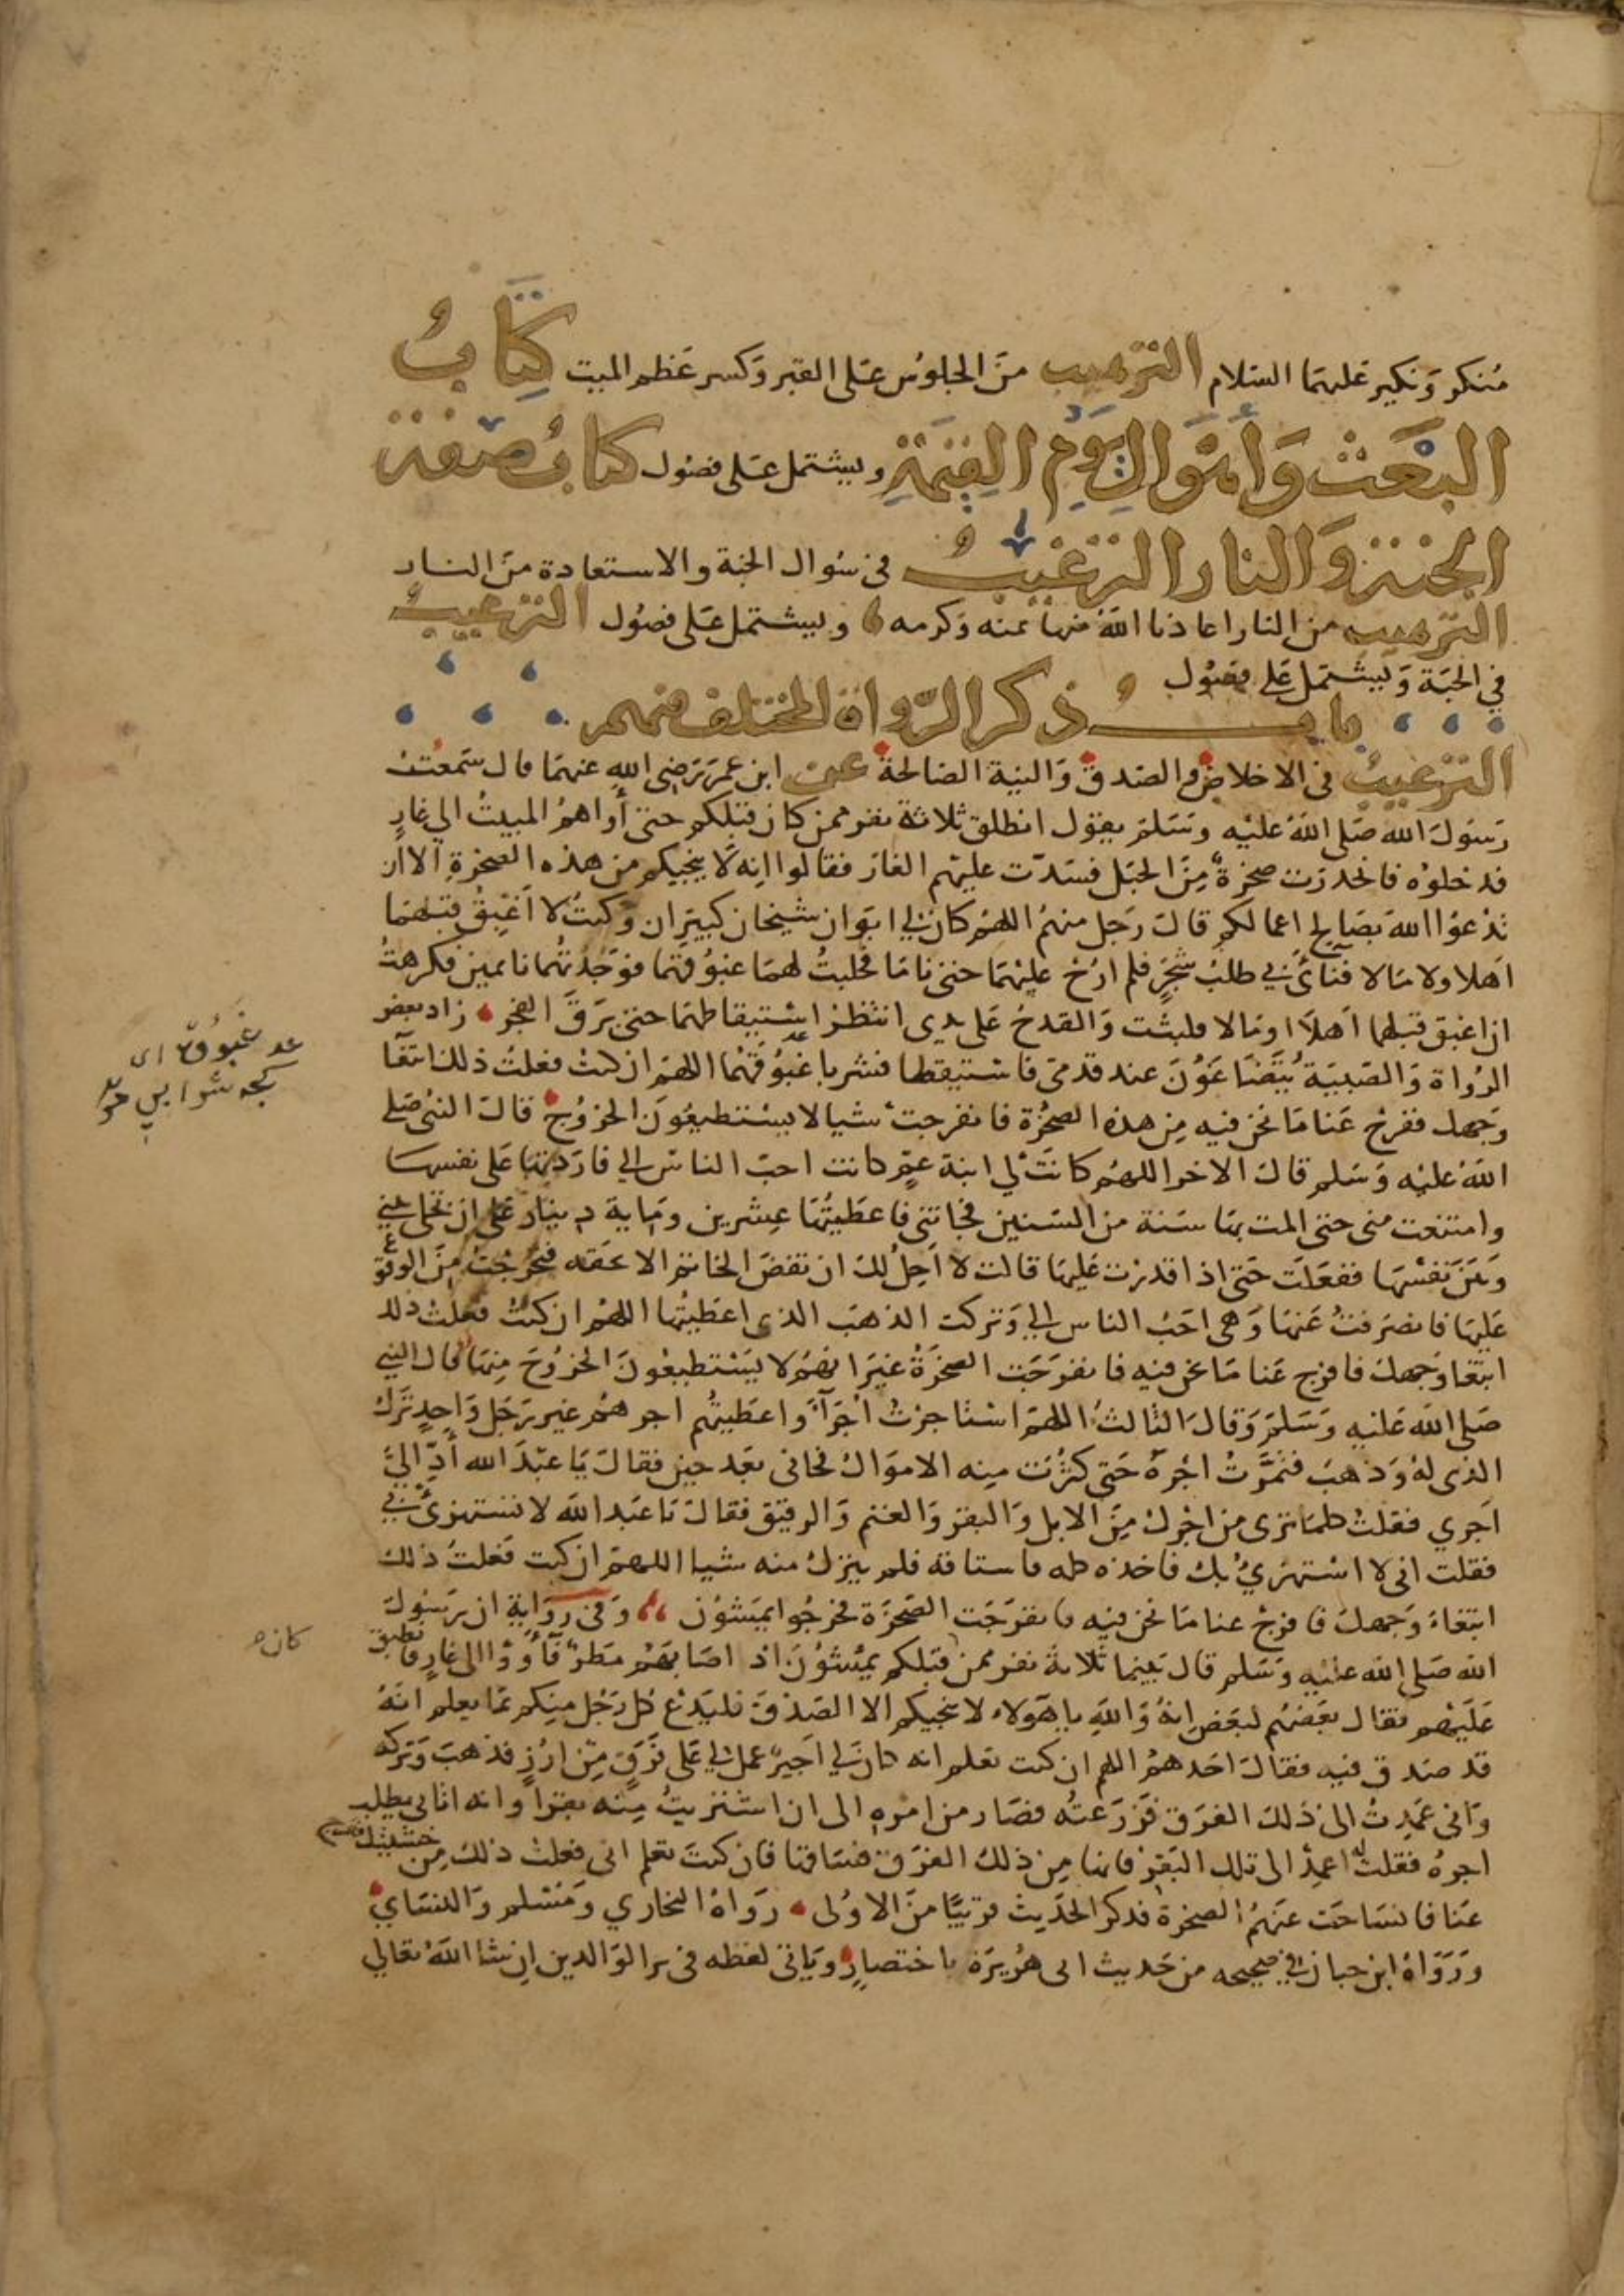 منكر وَنكير عَليهمَا السَلام الترهيب مِنَ الجلوُس عَلى القبر وَكسر عَظم الميت كِتَابُ
البَعَث وَاَهوَال يَومِ القِيٰمَةِ ويشتمل عَلى فصُول كتابُ صفة
الجنة وَالنار الترغيبُ في سُوال الجنة والاستعاذة منَ النار
الترهيب من النار اعاذنا اللهُ منها بمنه وَكرمه ويشتمل عَلى فصُول الترغيبُ
في الجنَة وَيشتمَل عَلى فصُول
بابُ ذكر الرّواة المختلف فيهم
الترغيبُ في الاخلاص والصَدق وَالنية الصَالحة عن ابن عمَرَ رَضِى اللهِ عنهمَا قال سَمعتُ
رَسُولَ الله صَلى اللهُ عَليْه وَسَلمَ يقوُل انطلق ثلاثة نفر ممن كان قبَلكم حتى أواهمُ المبيتُ الي غارٍ
فدخلوُه فانحدرَت صخرَةٌ مِنَ الجبَل فسَدّت عليهم الغارَ فقالوا اِنه لَا ينجيكم من هذه الصَخرةِ الا ان
تدْعوُا اللهَ بصَالح اعمالكم قالَ رَجل منهمُ اللهُمَ كان لي ابَوان شيخان كبيَران وَكنتُ لا اَغبِقُ قبلهمَا
اَهلا ولا مَالا فنأىٰ بي طلبُ شَجَرٍ فلم ارُحْ عليْهمَا حتى نامَا فحلبتُ لهمَا غبوُقهمَا فوَجَدْتهُما نائمين فكرهتُ
ان اغبق قبلهما اَهلًا اومَالا فلبثت وَالقدحُ عَلى يدى انتظرُ استيقاظهمَا حتى بَرَقَ الفجرُ زاد بعضُ
الرُواة وَالصَبيَة يُتَضَاغَوُنَ عند قدمَىّ فاسْتيقظا فشربا غَبوُقهُما اللهمَ ان كنتُ فعلتُ ذلكَ ابتغآ
وَجهك ففرج عَنا مَا نحن فيه مِن هذه الصَخْرَة فانفرجتْ شيا لا يسْتطيعُونَ الخرُوُجَ قالَ النبُى صَلى
اللهُ عليْه وَسَلم قالَ الاخر اللهمُ كانَتْ لي ابنة عمٍّ كانت احبّ الناس الي فارَدتهَا عَلى نفسهَا
وامتنعت منى حتى المت بهَا سَنة من السَنين فجاتنى فاعطَيتُهَا عِشرين ومَاية دينَار عَلى ان تخلىَ بيني
وَبَينَ نفسْهَا ففعَلَت حَتى اذا قدرت عَليهَا قالت لا اَحِلُ لكَ ان تفضَ الخاتمَ الا بحَقه فتحَرّجْتُ مِنَ الوقوع
عَليهَا فانصَرفتُ عَنهَا وَهي احَبُ الناس الي وَتركت الذهبَ الذى اعطَيتُها اللهُم ان كنتُ فعلتُ ذلك
ابتغا وَجهك فافرج عَنا مَا نحن فيه فانفرَجَت الصَخرَةُ غيَرَ انهمُ لا يَسْتطيعُونَ الخرُوُجَ مِنهَا قال النبي
صَلى اللهُ عَليْه وَسَلمَ وَقالَ الثالثُ اللهمَ استاجَرْتُ اُجَرَآءَ واعطَيتُهم اجرهمُ غير رَجَل وَاحِدٍ تَرَكَ
الذى لهُ وَذهبَ فثمَّرْتُ اجْرَهُ حَتى كثُرَت مِنه الاموَالُ فجاني بَعد حين فقالَ يَا عبْدَ الله أدِّ اليَّ
اَجْري فقلتُ كلمَا ترَى من اجْركَ مِنَ الابل وَالبقر وَالغنم وَالرقيق فقالَ يَا عبْد اللهَ لا تستهزئْ بي
فقلت انى لا استهزِئُ بك فاخذه كله فاستاقه فلم يتركُ منه شيا اللهمَ ان كنت فعلتُ ذلك
ابتغاءَ وَجهكَ فافرج عنا مَا نحن فيه فانفرَجَت الصَخرَة فخرجُوا يمشوُن وَفى رِوَاية ان رَسُولَ
الله صَلى اللهُ عليْه وَسَلم قال بَينما ثلاثة نفر ممن قبلكم يمْشوُنَ اذ اصَابهمُ مَطرٌ فَأوَوْا الى غارٍ فانطبق
عَلَيْهم فقال بعَضهُم لبَعَض انهُ وَاللهِ يا هَؤلاء لا ينجيكم الا الصِدق فليَدْع كل رَجُل مِنكم بمَا يعلم انهُ
قد صَدق فيه فقالَ احَدهمُ اللهم ان كنت تعلم انه كان لي اَجيرٌ عمل لي عَلى فَرَقٍ مِّن ارُزٍ فذهبَ وَتركه
وَانى عَمَدِتُ الى ذَلكَ الفَرَق فزَرَعتُه فصَار من امره الى ان اشتريتُ مِنه بقراً وانه اتاني يطلب
اجرهُ فقلتُ له اعمدْ الى تلك البَقَر فانها مِن ذلكَ الفرق فسَاقها فان كنتَ تعلم انى فعلتُ ذلك مِن خشيتك ففرج
عَنا فانسَاحَت عَنهمُ الصَخرة فذكر الحدَيث قريبًا منَ الاوُلى رَوَاهُ البخاري وَمُسْلم وَالنسَاي
وَرَوَاهُ ابن حبان في صحيحه من حَديث ابى هُرَيرَة باختصارٍ ويَاتى لفظه في بر الوَالدين اِن شا اللهُ تعَالي
غَبُوق اى
كجه
كان